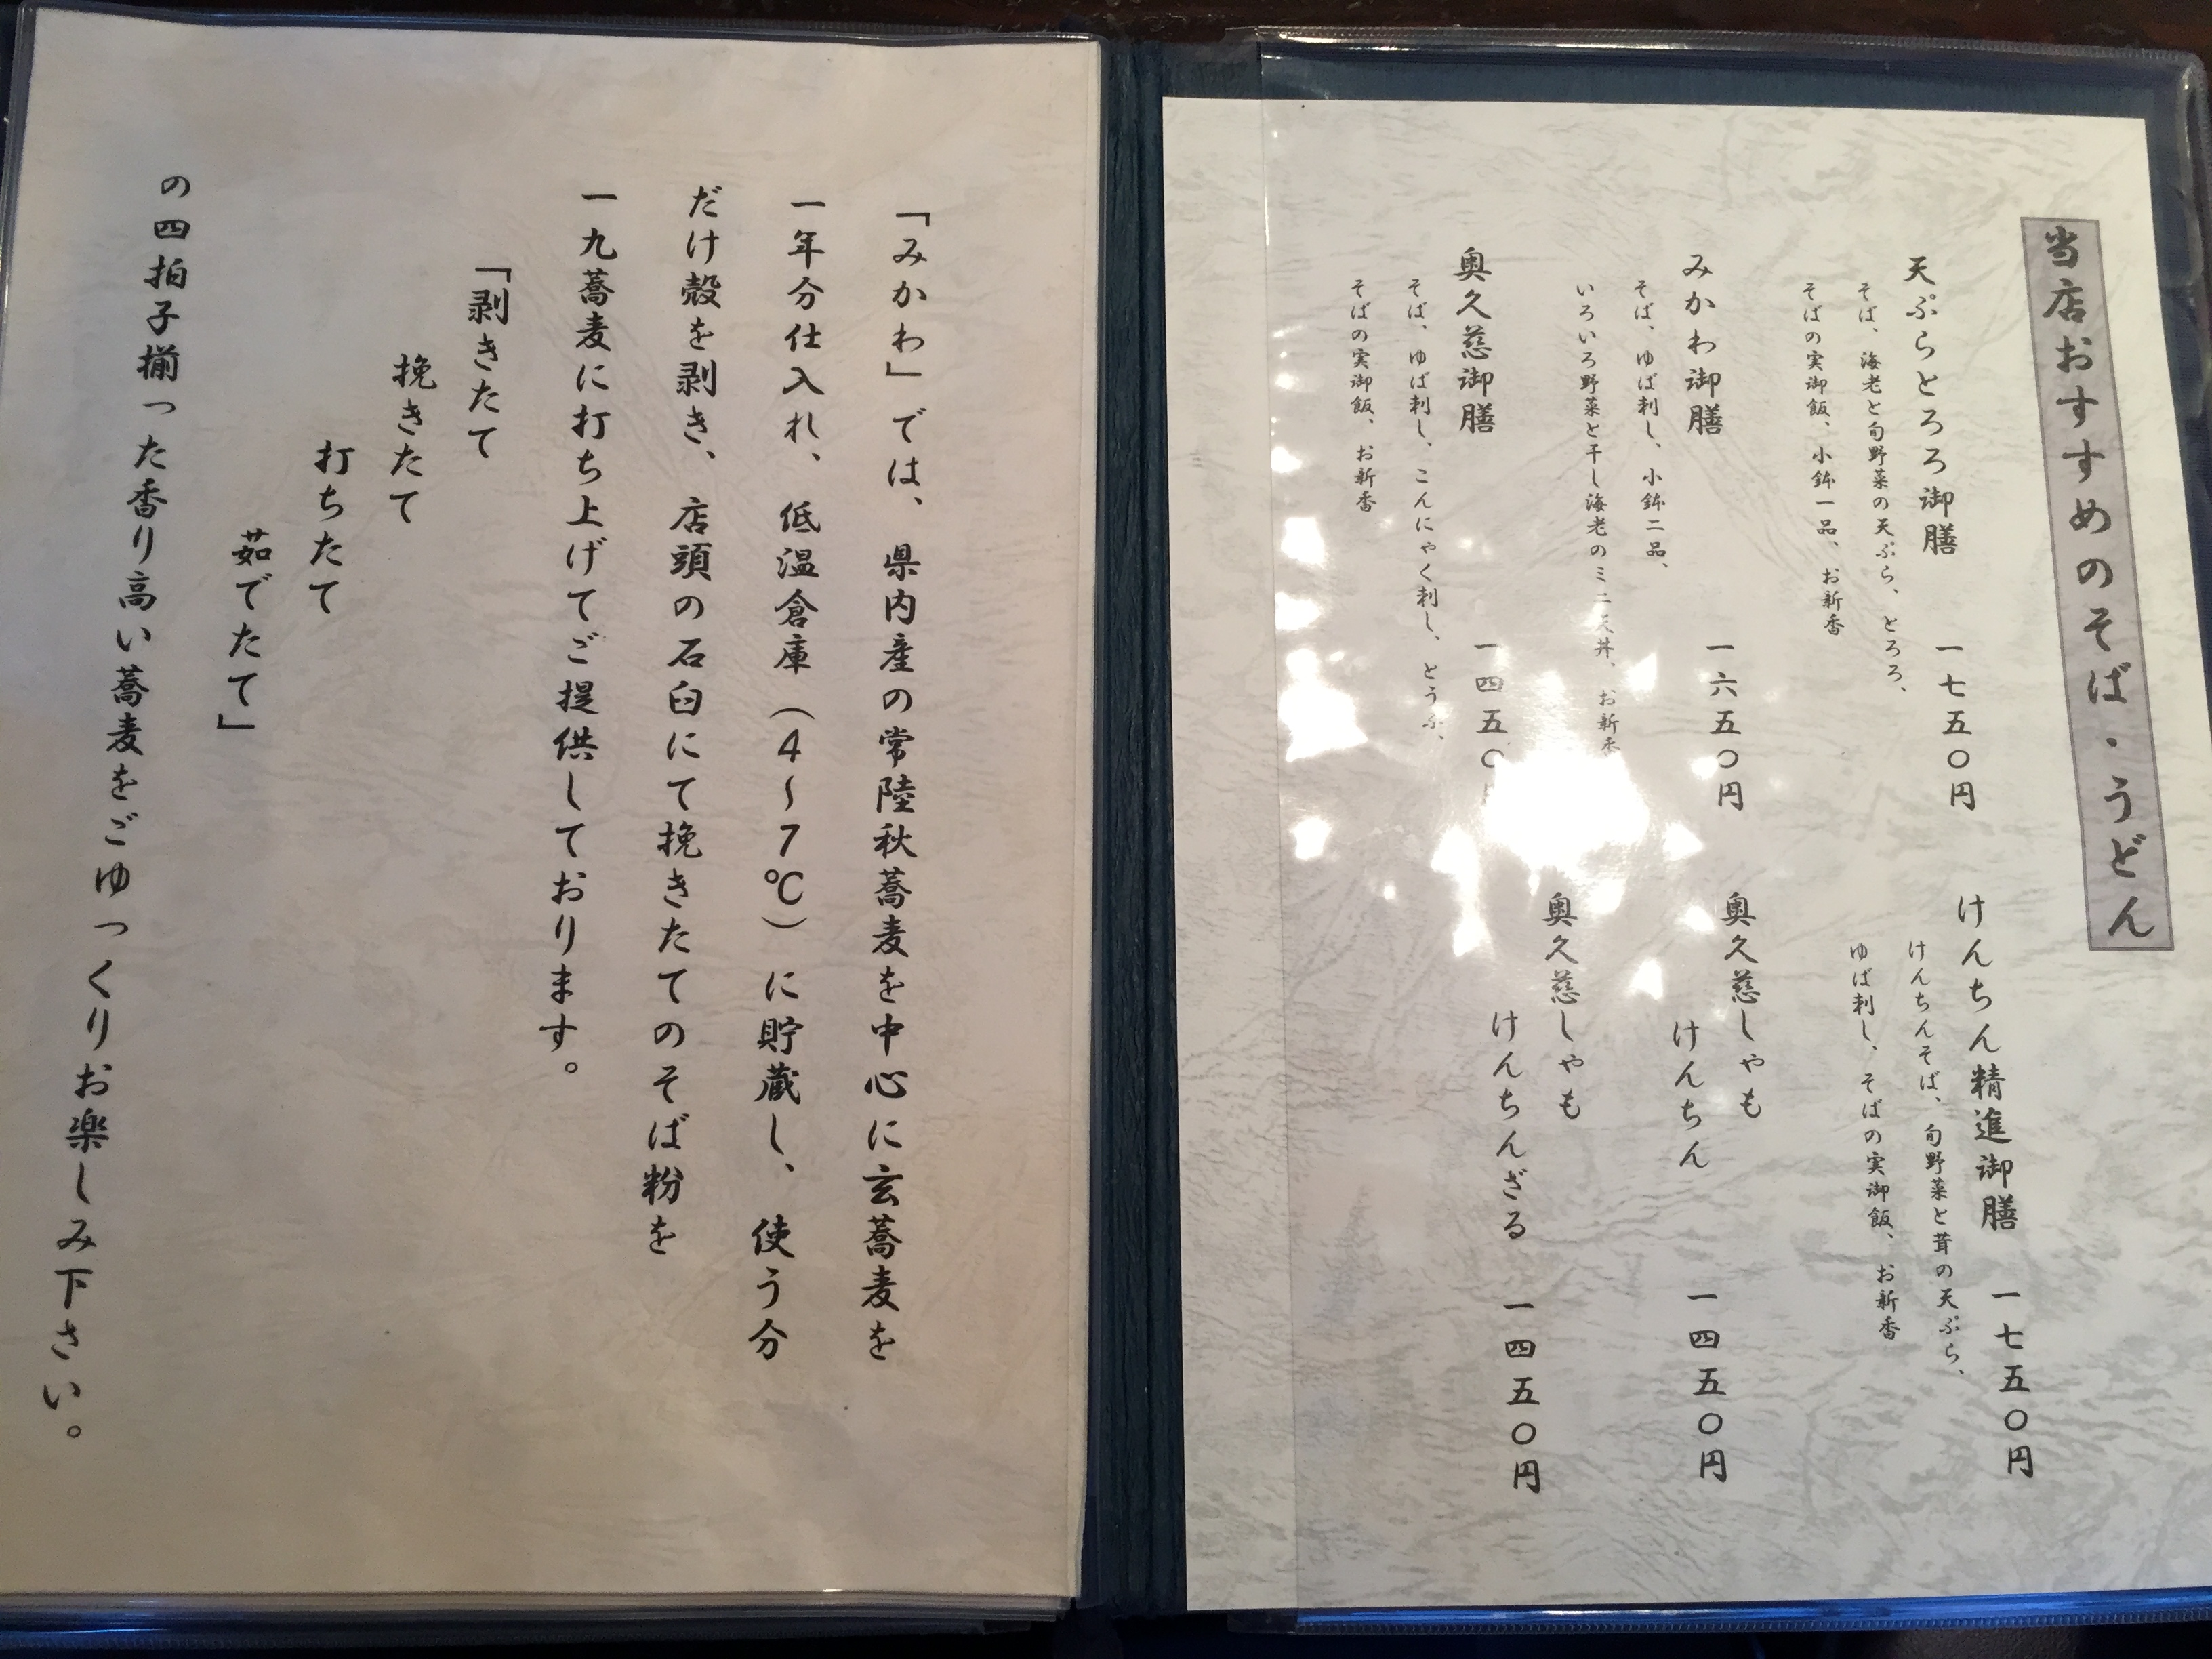 当店おすすめのそば・うどん
天ぷらとろろ御膳 一七五〇円
そば、海老と旬野菜の天ぷら、とろろ、
そばの実御飯、小鉢一品、お新香
みかわ御膳 一六五〇円
そば、ゆば刺し、小鉢二品、
いろいろ野菜と干し海老のミニ天丼、お新香
奥久慈御膳 一四五〇円
そば、ゆば刺し、こんにゃく刺し、とうふ、
そばの実御飯、お新香
けんちん精進御膳 一七五〇円
けんちんそば、旬野菜と茸の天ぷら、
ゆば刺し、そばの実御飯、お新香
奥久慈しゃも
けんちん 一四五〇円
奥久慈しゃも
けんちんざる 一四五〇円
「みかわ」では、県内産の常陸秋蕎麦を中心に玄蕎麦を
一年分仕入れ、低温倉庫（４～７℃）に貯蔵し、使う分
だけ殻を剥き、店頭の石臼にて挽きたてのそば粉を
一九蕎麦に打ち上げてご提供しております。
「剥きたて
挽きたて
打ちたて
茹でたて」
の四拍子揃った香り高い蕎麦をごゆっくりお楽しみ下さい。